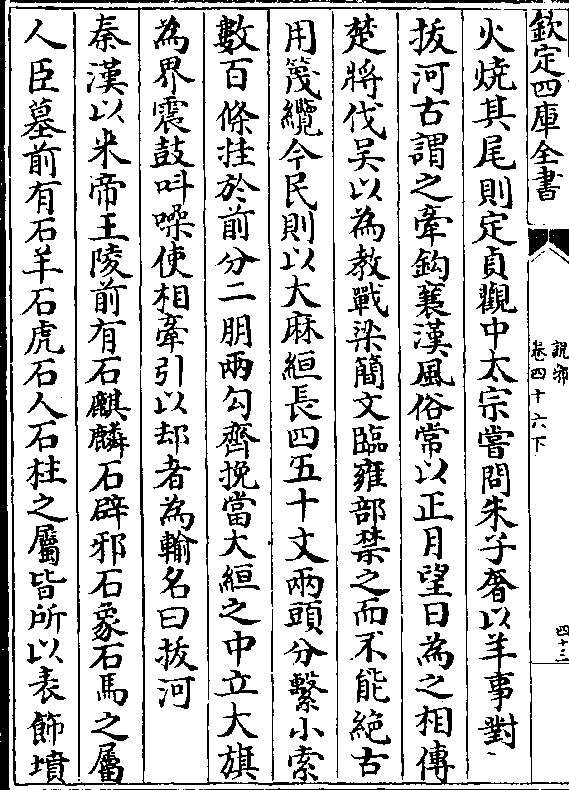 欽定四庫全書
說郛
卷四十六下
四十三
火燒其尾則定貞觀中太宗嘗問朱子奢以羊事對
拔河古謂之牽鈎襄漢風俗常以正月望日為之相傳
楚將伐吳以為教戰梁簡文臨雍部禁之而不能絶古
用篾纜今民則以大麻絙長四五十丈兩頭分繫小索
數百條挂於前分二朋兩勾齊挽當大絙之中立大旗
為界震鼓呌噪使相牽引以却者為輸名曰拔河
秦漢以来帝王陵前有石麒麟石辟邪石象石馬之屬
人臣墓前有石羊石虎石人石柱之屬皆所以表飾墳